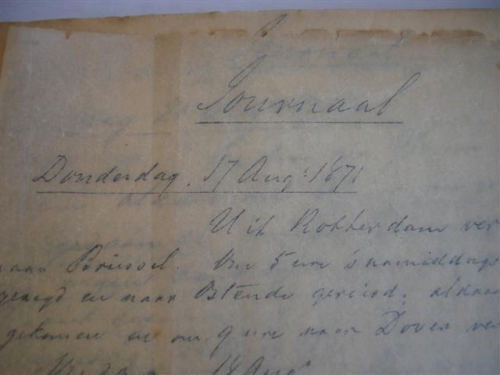 Journaal
Donderdag. 17 Augs 1871
Uit Rotterdam ver
naar Brussel. Om 5 ure 's namiddags
en naar Ostende gereisd, aldaar
gekomen en om 9 ure naar Dover ver
18 Augs